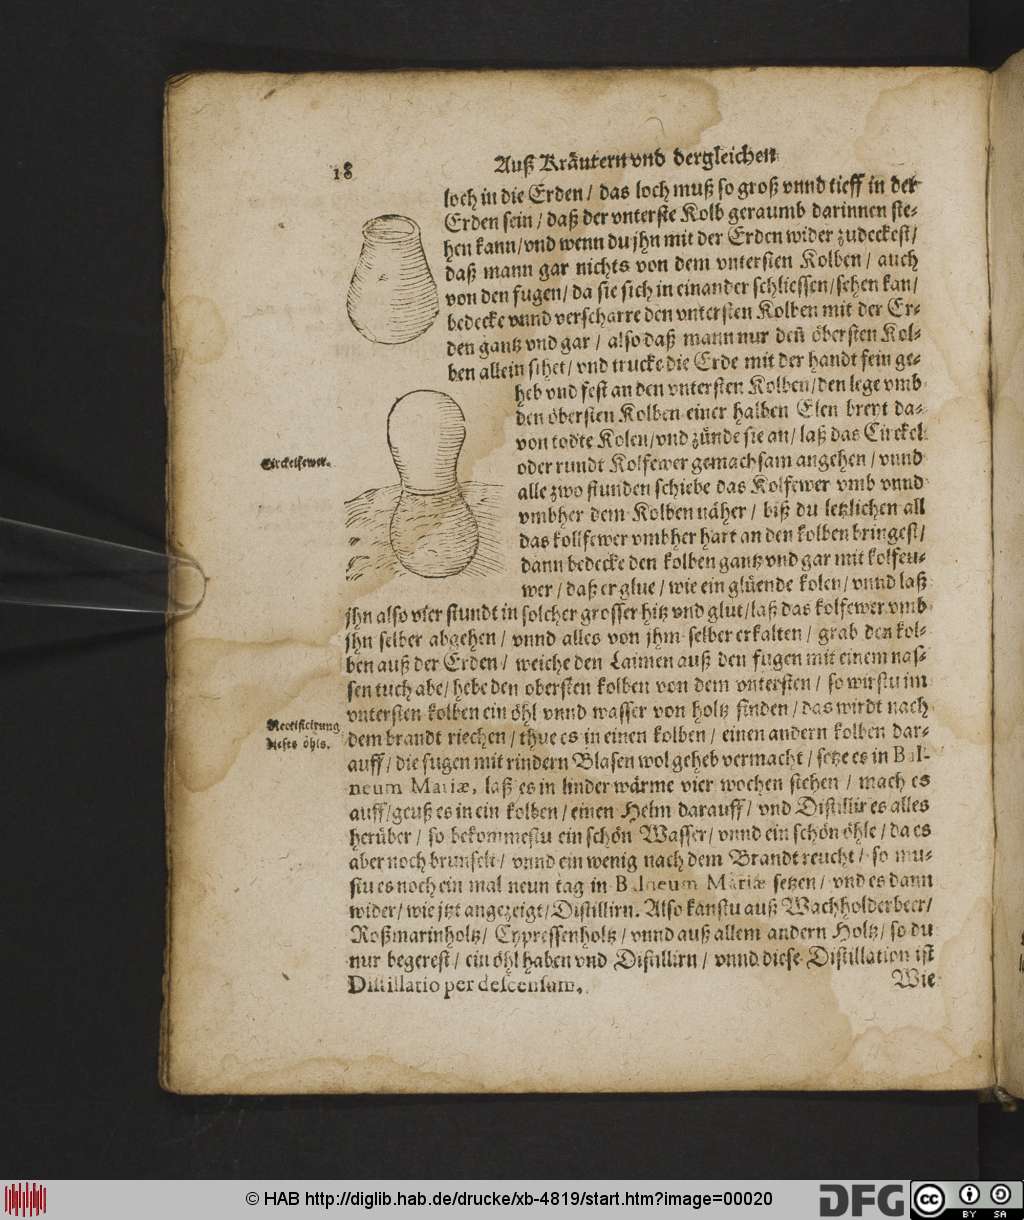 18
Auß Kräutern vnd dergleichen
loch in die Erden / das loch muß so groß vnnd tieff in der
Erden sein / daß der vnterste Kolb geraumb darinnen ste-
hen kann / vnd wenn du jhn mit der Erden wider zudeckest /
daß mann gar nichts von dem vntersten Kolben / auch
von den fugen / da sie sich in einander schliessen / sehen kan /
bedecke vnnd verscharre den vntersten Kolben mit der Er-
den gantz vnd gar / also daß mann nur den öbersten Kol-
ben allein sihet / vnd trucke die Erde mit der handt fein ge-
heb vnd fest an den vntersten Kolben / den lege vmb
den öbersten Kolben einer halben Elen breyt da-
von todte Kolen / vnd zünde sie an / laß das Circkel
oder rundt Kolfewer gemachsam angehen / vnnd
alle zwo stunden schiebe das Kolfewer vmb vnnd
vmbher dem Kolben näher / biß du letzlichen all
das kollfewer vmbher hart an den kolben bringest /
dann bedecke den kolben gantz vnd gar mit kolfeu-
wer / daß er glue / wie ein glüende kolen / vnnd laß
jhn also vier stundt in solcher grosser hitz vnd glut / laß das kolfewer vmb
jhn selber abgehen / vnnd alles von jhm selber erkalten / grab den kol-
ben auß der Erden / weiche den Laimen auß den fugen mit einem nas-
sen tuch abe / hebe den obersten kolben von dem vntersten / so wirstu im
vntersten kolben ein öhl vnnd wasser von holtz finden / das wirdt nach
dem brandt riechen / thue es in einen kolben / einen andern kolben dar-
auff / die fugen mit rindern Blasen wol geheb vermacht / setze es in Bal-
neum Mariæ, laß es in linder wärme vier wochen stehen / mach es
auff / geuß es in ein kolben / einen Helm darauff / vnd Distillir es alles
herüber / so bekommestu ein schön Wasser / vnnd ein schön öhle / da es
aber noch brunselt / vnnd ein wenig nach dem Brandt reucht / so mu-
stu es noch ein mal neun tag in Balneum Mariæ setzen / vnd es dann
wider / wie jtzt angezeigt / Distillirn. Also kanstu auß Wachholderbeer /
Roßmarinholtz / Cypressenholtz / vnnd auß allem andern Holtz / so du
nur begerest / ein öhl haben vnd Distillirn / vnnd diese Distillation ist
Distillatio per descensum.
Wie
Circkelfewer.
Rectificirung
diests öhls.
© HAB http://diglib.hab.de/drucke/xb-4819/start.htm?image=00020
DFG
cc
BY SA